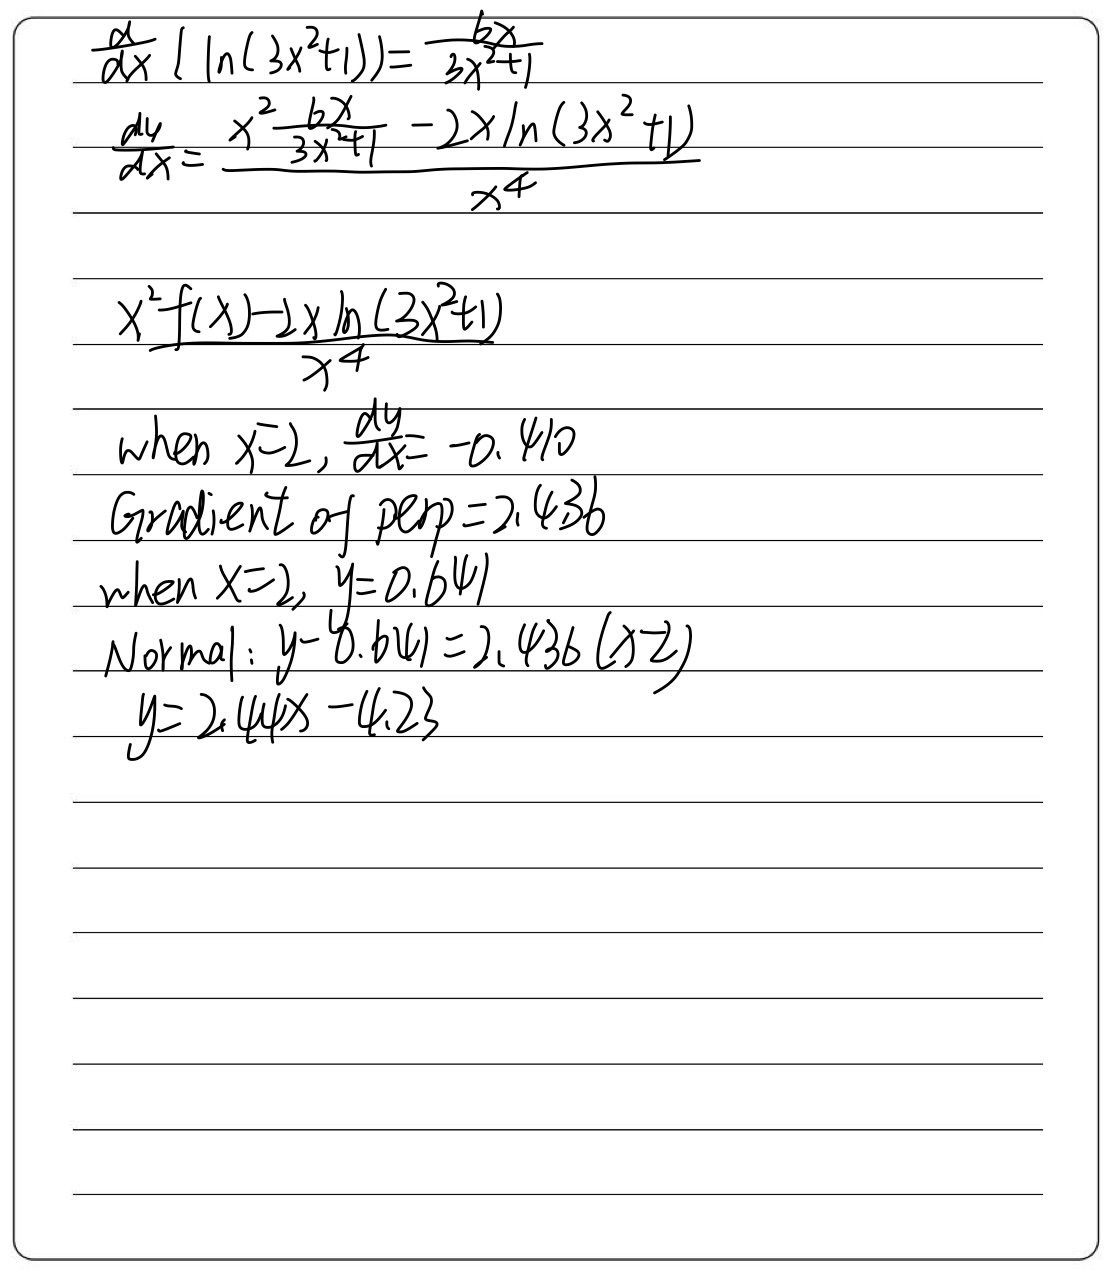 d/dx (ln(3x²+1)) = 6x/(3x²+1)
dy/dx = (x² 6x/(3x²+1) - 2x ln(3x²+1))/x⁴
(x² f(x) - 2x ln(3x²+1))/x⁴
when x=2, dy/dx = -0.410
Gradient of perp = 2.436
when x=2, y=0.641
Normal: y-0.641 = 2.436(x-2)
y = 2.44x - 4.23